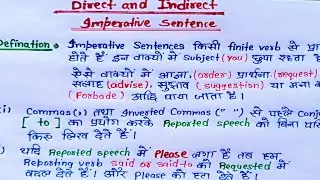 Direct and Indirect
Imperative Sentence
Defination:- Imperative Sentences किसी finite verb से प्रा
होते हैं इन वाक्यों में Subject (you) छुपा रहता है
ऐसे वाक्यों में आज्ञा, (order) प्रार्थना (request)
सलाह (advise), सुझाव (suggestion) या मना क
(Forbade) आदि पाया जाता है।
i) Commas(,) तथा Inverted Commas (" ") से पहले Conj
[to] का प्रयोग करके Reported speech को बिना परि
किए लिख देते हैं।
ii) यदि Reported speech में Please लगा है तब हम
Reporting verb said or said to को Requested में
बदल देते हैं। और Please को हटा देते हैं।